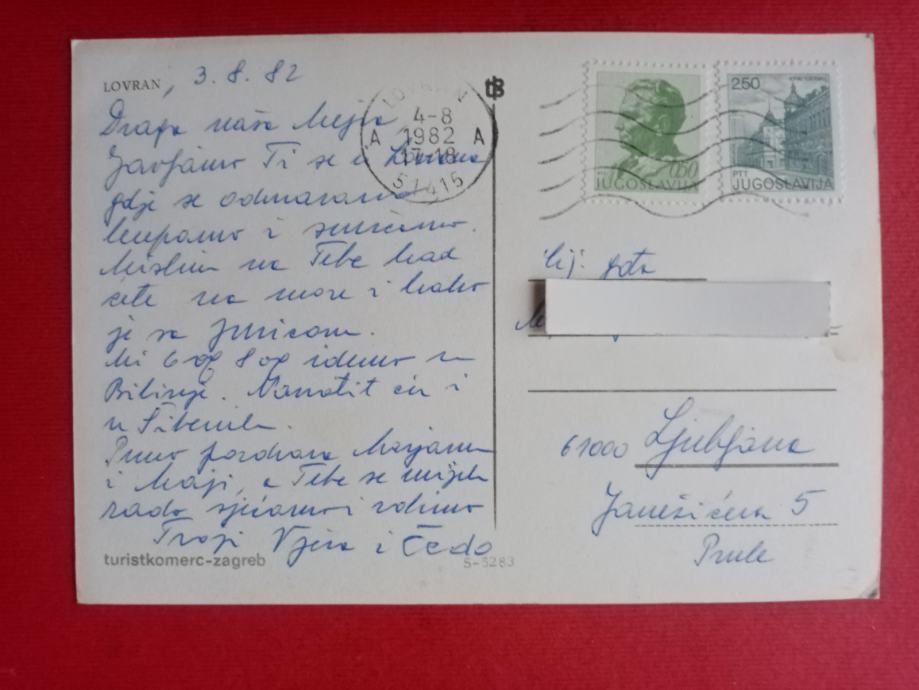 LOVRAN, 3.8.82
Draga naša
Javljamo Ti se iz Lovrana
gdje se odmaramo
kupamo i sunčamo.
Mislim na Tebe kad
ćete na more i kako
je sa Juricom.
Mi 6 og 8 og idemo u
Bilinje. Navratit ću i
u Šibenik.
Puno pozdrava Marjanu
i Maji, a Tebe se uvijek
rado sjećamo i volimo
Tvoji Vjera i Čedo
turistkomerc-zagreb
S-5283
LOVRAN
4-8
A 1982 A
17-18
51415
0,60
PTT
JUGOSLAVIJA
2,50
PTT
JUGOSLAVIJA
Cij. gđa
61000 Ljubljana
Janežićeva 5
Prule